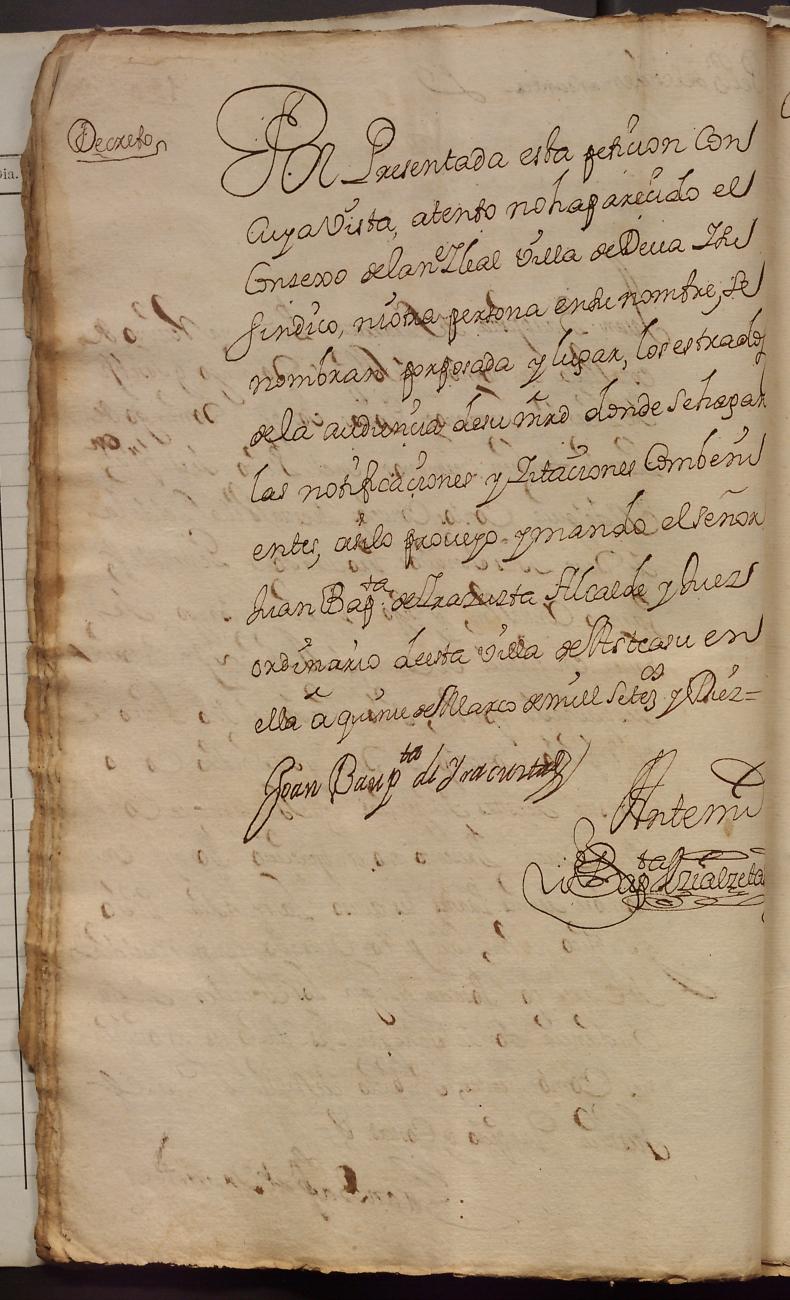 Decreto
Por Presentada esta peticion Con
Cuya Vista, atento nohaparecido el
Consexo delan.e Leal Villa deDeva Shu
sindico, niotra persona ensu nombre, se
nombran porposada y lugar, los estrados
dela audiencia desu mrd donde sehagan
las notificaciones y Zitaciones Combeni
entes, asilo proveyo ymando elseñor
Juan Bap.ta deIrazusta Alcalde y Juez
ordinario deesta Villa deAsteasu en
ella a quinze deMarzo demill Setez.os y Diez=
Joan Baup.ta de Yracusta
Antemi
Bap.ta